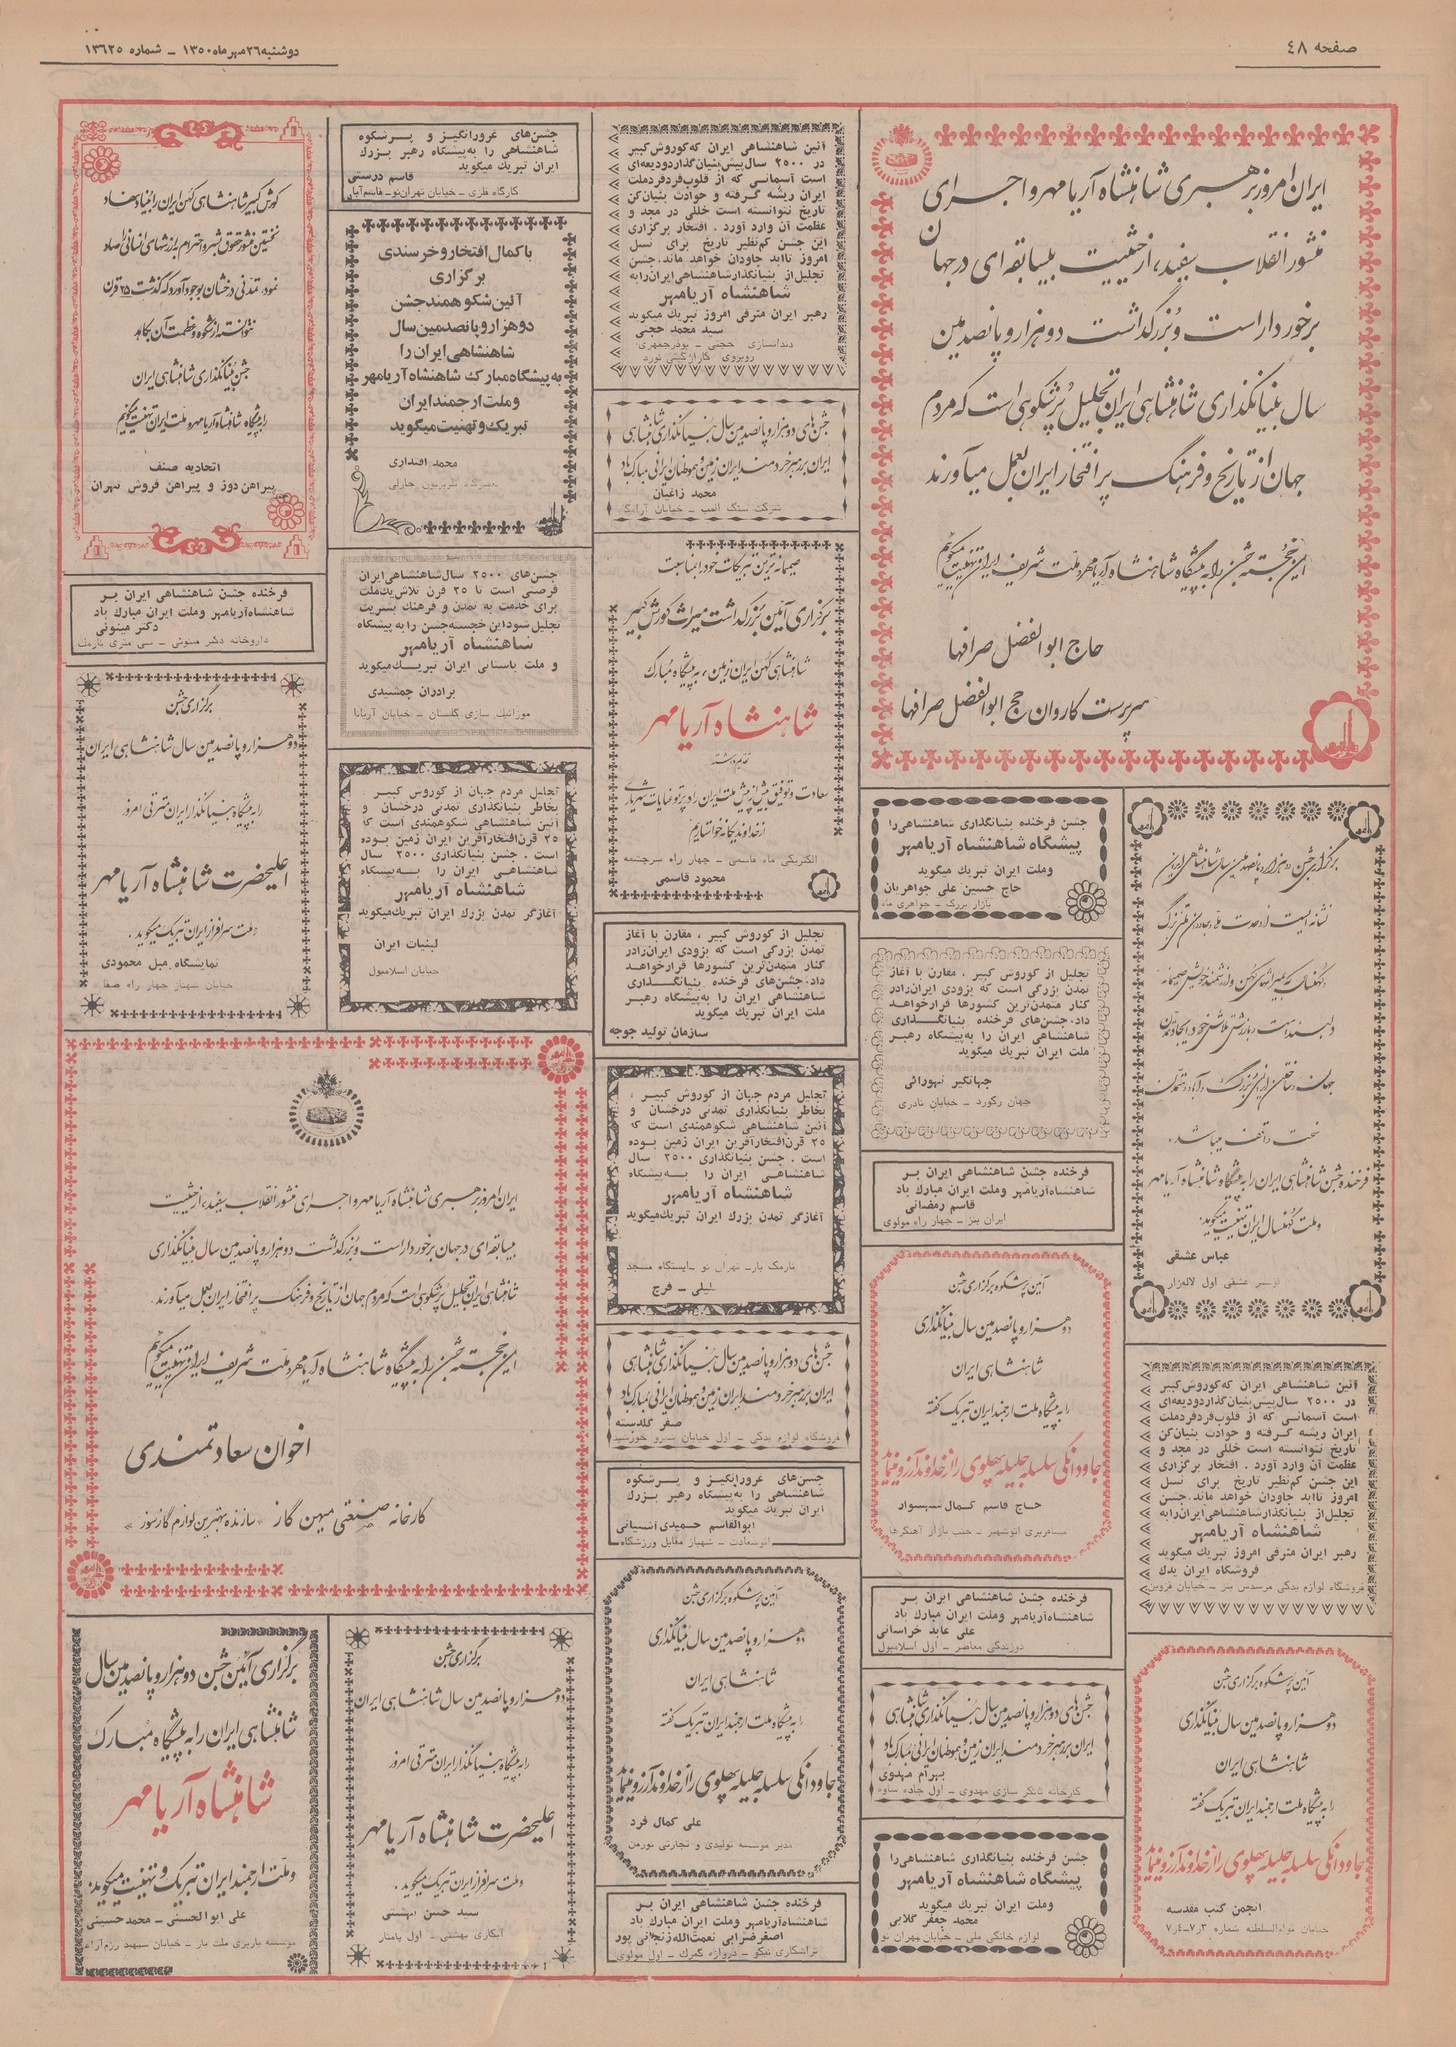 صفحه ٤٨
دوشنبه ٢٦ مهر ماه ١٣٥٠ ـ شماره ١٣٦٢٥
ایران امروز برهبری شاهنشاه آریامهر و اجرای
منشور انقلاب سفید، از حیثیت بیسابقه‌ای در جهان
برخوردار است و بزرگداشت دوهزار و پانصدمین
سال بنیانگذاری شاهنشاهی ایران تجلیل پرشکوهی است که مردم
جهان از تاریخ و فرهنگ پر افتخار ایران بعمل میآورند
این خجسته جشن را به پیشگاه شاهنشاه آریامهر و ملت شریف ایران تهنیت میگوییم
حاج ابوالفضل صرافها
سرپرست کاروان حج ابوالفضل صرافها
برگزاری جشن دوهزار و پانصدمین سال شاهنشاهی ایران
فرخنده جشن شاهنشاهی ایران را به پیشگاه شاهنشاه آریامهر
و ملت کهنسال ایران تهنیت میگوید.
عباس عشقی
آئین شاهنشاهی ایران که کوروش کبیر
در ٢٥٠٠ سال پیش بنیان گذارد ودیعه‌ای
است آسمانی که از قلوب فرد فرد ملت
ایران ریشه گرفته و حوادث بنیان‌کن
تاریخ نتوانسته است خللی در مجد و
عظمت آن وارد آورد . افتخار برگزاری
این جشن کم‌نظیر تاریخ برای نسل
امروز تاابد جاودان خواهد ماند. جشن
تجلیل از بنیانگذار شاهنشاهی ایران را به
شاهنشاه آریامهر
رهبر ایران مترقی امروز تبریک میگوید
فروشگاه ایران یدک
فروشگاه لوازم یدکی مرسدس بنز ـ خیابان قزوین
آیین پرشکوه برگزاری جشن
دو هزار و پانصدمین سال بنیانگذاری
شاهنشاهی ایران
را به پیشگاه ملت ارجمند ایران تبریک گفته
جاودانگی سلسله جلیله پهلوی را از خداوند آرزو مینماید
انجمن کتب مقدسه
خیابان قوام‌السلطنه شماره ٧٠٣ـ٧٠٤
جشن فرخنده بنیانگذاری شاهنشاهی را
پیشگاه شاهنشاه آریامهر
وملت ایران تبریک میگوید
حاج حسین علی جواهریان
بازار بزرگ ـ جواهری ماه
تجلیل از کوروش کبیر ، مقارن با آغاز
تمدن بزرگی است که بزودی ایران را در
کنار متمدن‌ترین کشورها قرارخواهد
داد. جشن‌های فرخنده بنیانگذاری
شاهنشاهی ایران را به‌پیشگاه رهبر
ملت ایران تبریک میگوید
جهان رکورد ـ خیابان نادری
فرخنده جشن شاهنشاهی ایران بر
شاهنشاه آریامهر وملت ایران مبارک باد
قاسم رمضانی
ایران بنز ـ چهار راه مولوی
آیین پرشکوه برگزاری جشن
دو هزار و پانصدمین سال بنیانگذاری
شاهنشاهی ایران
را به پیشگاه ملت ارجمند ایران تبریک گفته
جاودانگی سلسله جلیله پهلوی را از خداوند آرزو مینماید
حاج قاسم کمال سبسوار
مسافربری اتوشهیر ـ جنب بازار آهنگرها
فرخنده جشن شاهنشاهی ایران بر
شاهنشاه آریامهر وملت ایران مبارک باد
علی عابد خراسانی
دوزندگی معاصر ـ اول اسلامبول
جشن‌های دوهزار و پانصدمین سال بنیانگذاری شاهنشاهی
ایران بر رهبر خردمند ایران زمین و هموطنان ایرانی مبارک باد
بهرام مهدوی
کارخانه تانکر سازی مهدوی ـ اول جاده ساوه
جشن فرخنده بنیانگذاری شاهنشاهی را
پیشگاه شاهنشاه آریامهر
وملت ایران تبریک میگوید
محمد جعفر گلابی
لوازم خانگی ملی ـ خیابان مهران نو
آئین شاهنشاهی ایران که کوروش کبیر
در ٢٥٠٠ سال پیش بنیان گذارد ودیعه‌ای
است آسمانی که از قلوب فرد فرد ملت
ایران ریشه گرفته و حوادث بنیان‌کن
تاریخ نتوانسته است خللی در مجد و
عظمت آن وارد آورد . افتخار برگزاری
این جشن کم‌نظیر تاریخ برای نسل
امروز تاابد جاودان خواهد ماند. جشن
تجلیل از بنیانگذار شاهنشاهی ایران را به
شاهنشاه آریامهر
رهبر ایران مترقی امروز تبریک میگوید
سید محمد حجی
دندانسازی حجتی ـ بوذرجمهری
روبروی گاراژ گیتی نورد
جشن‌های دوهزار و پانصدمین سال بنیانگذاری شاهنشاهی
ایران بر رهبر خردمند ایران زمین و هموطنان ایرانی مبارک باد
محمد زاغیان
صمیمانه ترین تبریکات خود را بمناسبت
برگزاری آئین بزرگداشت میراث کورش کبیر
شاهنشاهی کهن ایران زمین، به پیشگاه مبارک
شاهنشاه آریامهر
تقدیم داشته
سعادت و توفیق بیش از پیش ملت ایران را در پرتو عنایات شهریاری
از خداوند یگانه خواستاریم
الکتریکی ماه قاسمی ـ چهار راه سرچشمه
محمود قاسمی
تجلیل از کوروش کبیر ، مقارن با آغاز
تمدن بزرگی است که بزودی ایران را در
کنار متمدن‌ترین کشورها قرارخواهد
داد. جشن‌های فرخنده بنیانگذاری
شاهنشاهی ایران را به‌پیشگاه رهبر
ملت ایران تبریک میگوید
سازمان تولید جوجه
تجلیل مردم جهان از کوروش کبیر ،
بخاطر بنیانگذاری تمدنی درخشان و
آئین شاهنشاهی شکوهمندی است که
٢٥ قرن افتخارآفرین ایران زمین بوده
است . جشن بنیانگذاری ٢٥٠٠ سال
شاهنشاهی ایران را به‌پیشگاه
شاهنشاه آریامهر
آغازگر تمدن بزرگ ایران تبریک میگوید
نارمک بار ـ تهران نو ـ ایستگاه مسجد
لیلی ـ فرج
جشن‌های دوهزار و پانصدمین سال بنیانگذاری شاهنشاهی
ایران بر رهبر خردمند ایران زمین و هموطنان ایرانی مبارک باد
صفر گلدسته
فروشگاه لوازم یدکی ـ اول خیابان نیرو خورشید
جشن‌های غرورانگیز و پرشکوه
شاهنشاهی را به‌پیشگاه رهبر بزرگ
ایران تبریک میگوید
ابوالقاسم حمیدی آشتیانی
اتوسعادت ـ شهباز مقابل ورزشگاه
آیین پرشکوه برگزاری جشن
دو هزار و پانصدمین سال بنیانگذاری
شاهنشاهی ایران
را به پیشگاه ملت ارجمند ایران تبریک گفته
جاودانگی سلسله جلیله پهلوی را از خداوند آرزو مینماید
علی کمال فرد
مدیر موسسه تولیدی و تجارتی نورمن
فرخنده جشن شاهنشاهی ایران بر
شاهنشاه آریامهر وملت ایران مبارک باد
اصغر ضرابی نعمت‌الله زنجانی پور
تراشکاری نیکو ـ دروازه گمرک ـ اول مولوی
جشن‌های غرورانگیز و پرشکوه
شاهنشاهی را به‌پیشگاه رهبر بزرگ
ایران تبریک میگوید
قاسم درستی
کارگاه فلزی ـ خیابان تهران‌نو ـ قاسم‌آباد
باکمال افتخار و خرسندی
برگزاری
آئین شکوهمند جشن
دوهزار و پانصدمین سال
شاهنشاهی ایران را
به پیشگاه مبارک شاهنشاه آریامهر
وملت ارجمند ایران
تبریک و تهنیت میگوید
محمد اقتداری
جشن‌های ٢٥٠٠ سال شاهنشاهی ایران
فرصتی است تا ٢٥ قرن تلاش یک ملت
برای خدمت به تمدن و فرهنگ بشریت
تجلیل شود این خجسته جشن را به پیشگاه
شاهنشاه آریامهر
و ملت باستانی ایران تبریک میگوید
برادران جمشیدی
موزائیک سازی گلستان ـ خیابان آریانا
تجلیل مردم جهان از کوروش کبیر
بخاطر بنیانگذاری تمدنی درخشان و
آئین شاهنشاهی شکوهمندی است که
٢٥ قرن افتخارآفرین ایران زمین بوده
است . جشن بنیانگذاری ٢٥٠٠ سال
شاهنشاهی ایران را به‌پیشگاه
شاهنشاه آریامهر
آغازگر تمدن بزرگ ایران تبریک میگوید
لبنیات ایران
خیابان اسلامبول
کورش کبیر شاهنشاهی کهن ایران را بنیاد نهاد
نخستین منشور حقوق بشر و احترام به ارزشهای انسانی را صادر
نمود، تمدنی درخشان بوجود آورد که گذشت ٢٥ قرن
نتوانسته از شکوه و عظمت آن بکاهد
جشن بنیانگذاری شاهنشاهی ایران
را به پیشگاه شاهنشاه آریامهر و ملت ایران تهنیت میگوییم
اتحادیه صنف
پیراهن دوز و پیراهن فروش تهران
فرخنده جشن شاهنشاهی ایران بر
شاهنشاه آریامهر وملت ایران مبارک باد
دکتر مینوئی
داروخانه دکتر مینوئی ـ سی متری نارمک
برگزاری جشن
دوهزار و پانصدمین سال شاهنشاهی ایران
را به پیشگاه بنیانگذار ایران مترقی امروز
اعلیحضرت شاهنشاه آریامهر
و ملت سرافراز ایران تبریک میگوید .
نمایشگاه مبل محمودی
خیابان شهناز چهار راه صفا
ایران امروز برهبری شاهنشاه آریامهر و اجرای منشور انقلاب سفید، از حیثیت
بیسابقه‌ای در جهان برخوردار است و بزرگداشت دوهزار و پانصدمین سال بنیانگذاری
شاهنشاهی ایران تجلیل پرشکوهی است که مردم جهان از تاریخ و فرهنگ پر افتخار ایران بعمل میآورند.
این خجسته جشن را به پیشگاه شاهنشاه آریامهر و ملت شریف ایران تهنیت میگوییم
اخوان سعادتمندی
کارخانه صنعتی میهن گاز «سازنده بهترین لوازم گازسوز»
برگزاری جشن
دوهزار و پانصدمین سال شاهنشاهی ایران
را به پیشگاه بنیانگذار ایران مترقی امروز
اعلیحضرت شاهنشاه آریامهر
و ملت سرافراز ایران تبریک میگوید .
سید حسن بهشتی
آبکاری بهشتی ـ اول پامنار
برگزاری آئین جشن دوهزار و پانصدمین سال
شاهنشاهی ایران را به پیشگاه مبارک
شاهنشاه آریامهر
و ملت ارجمند ایران تبریک و تهنیت میگوید.
علی ابوالحسنی ـ محمد حسینی
موسسه باربری ملت بار ـ خیابان سپهبد رزم‌آرا